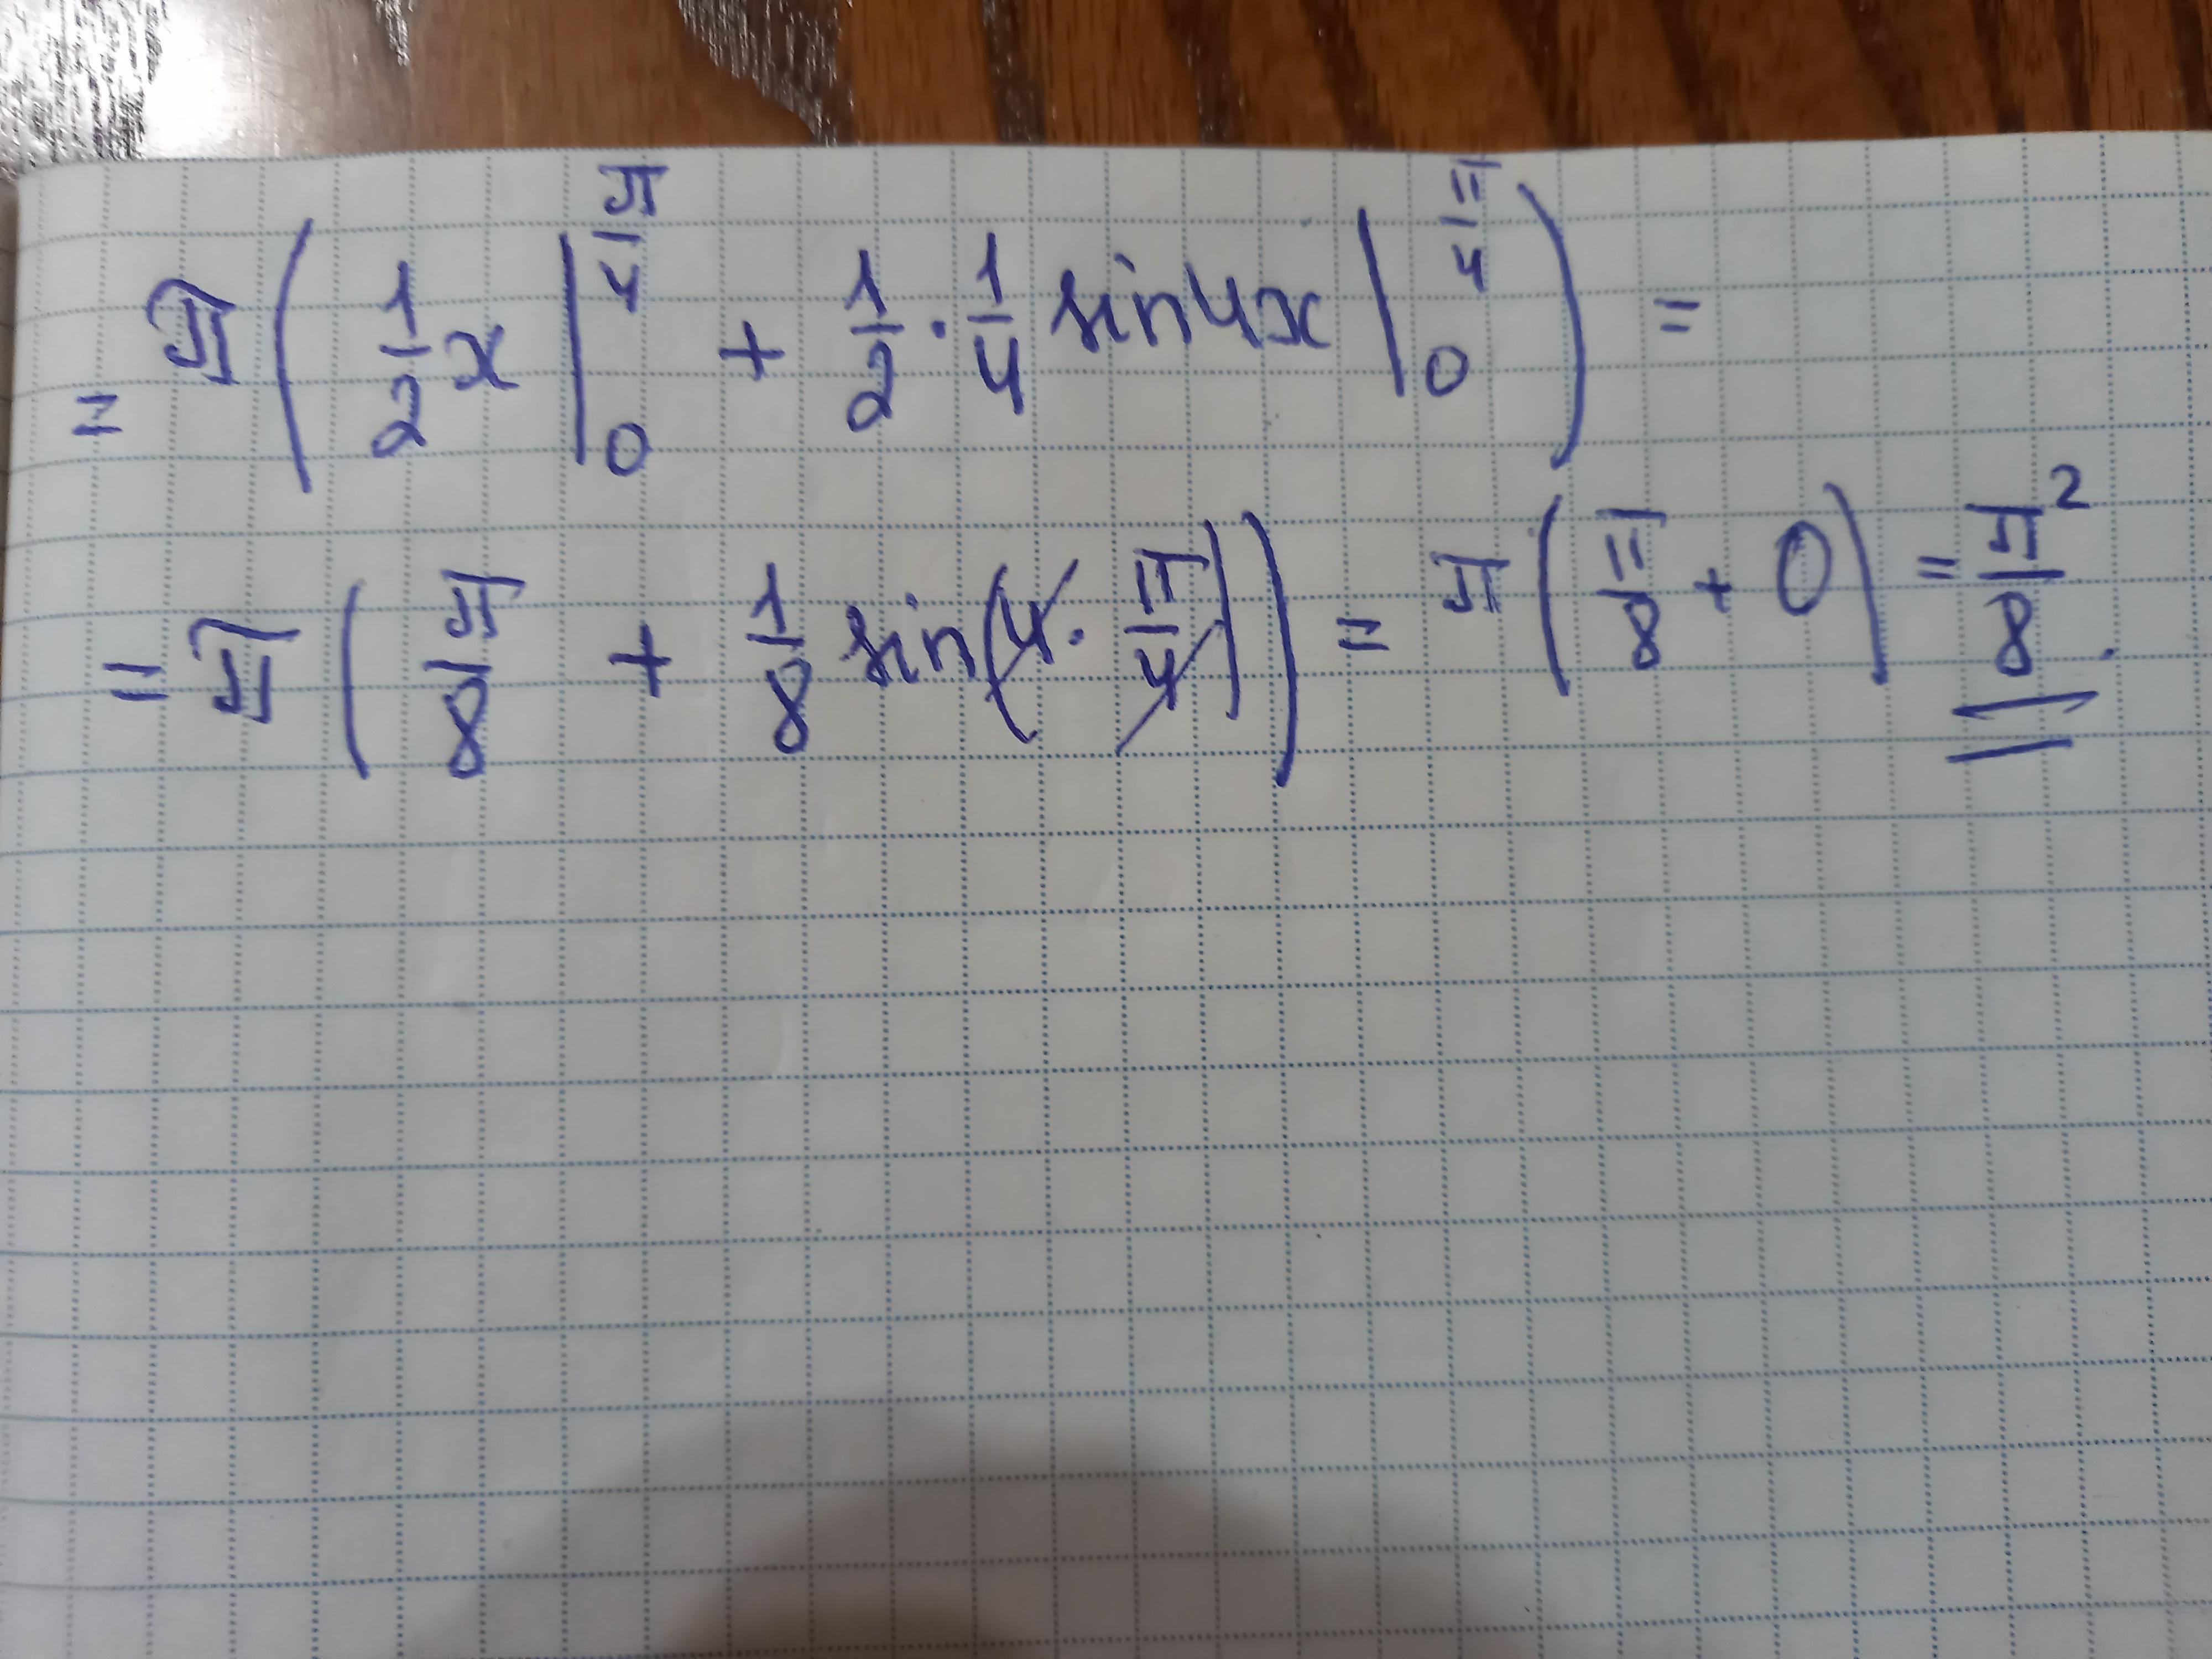 = π ( 1/2 x |₀^(π/4) + 1/2 · 1/4 sin4x |₀^(π/4) ) =
= π ( π/8 + 1/8 sin(4 · π/4) ) = π ( π/8 + 0 ) = π²/8 .